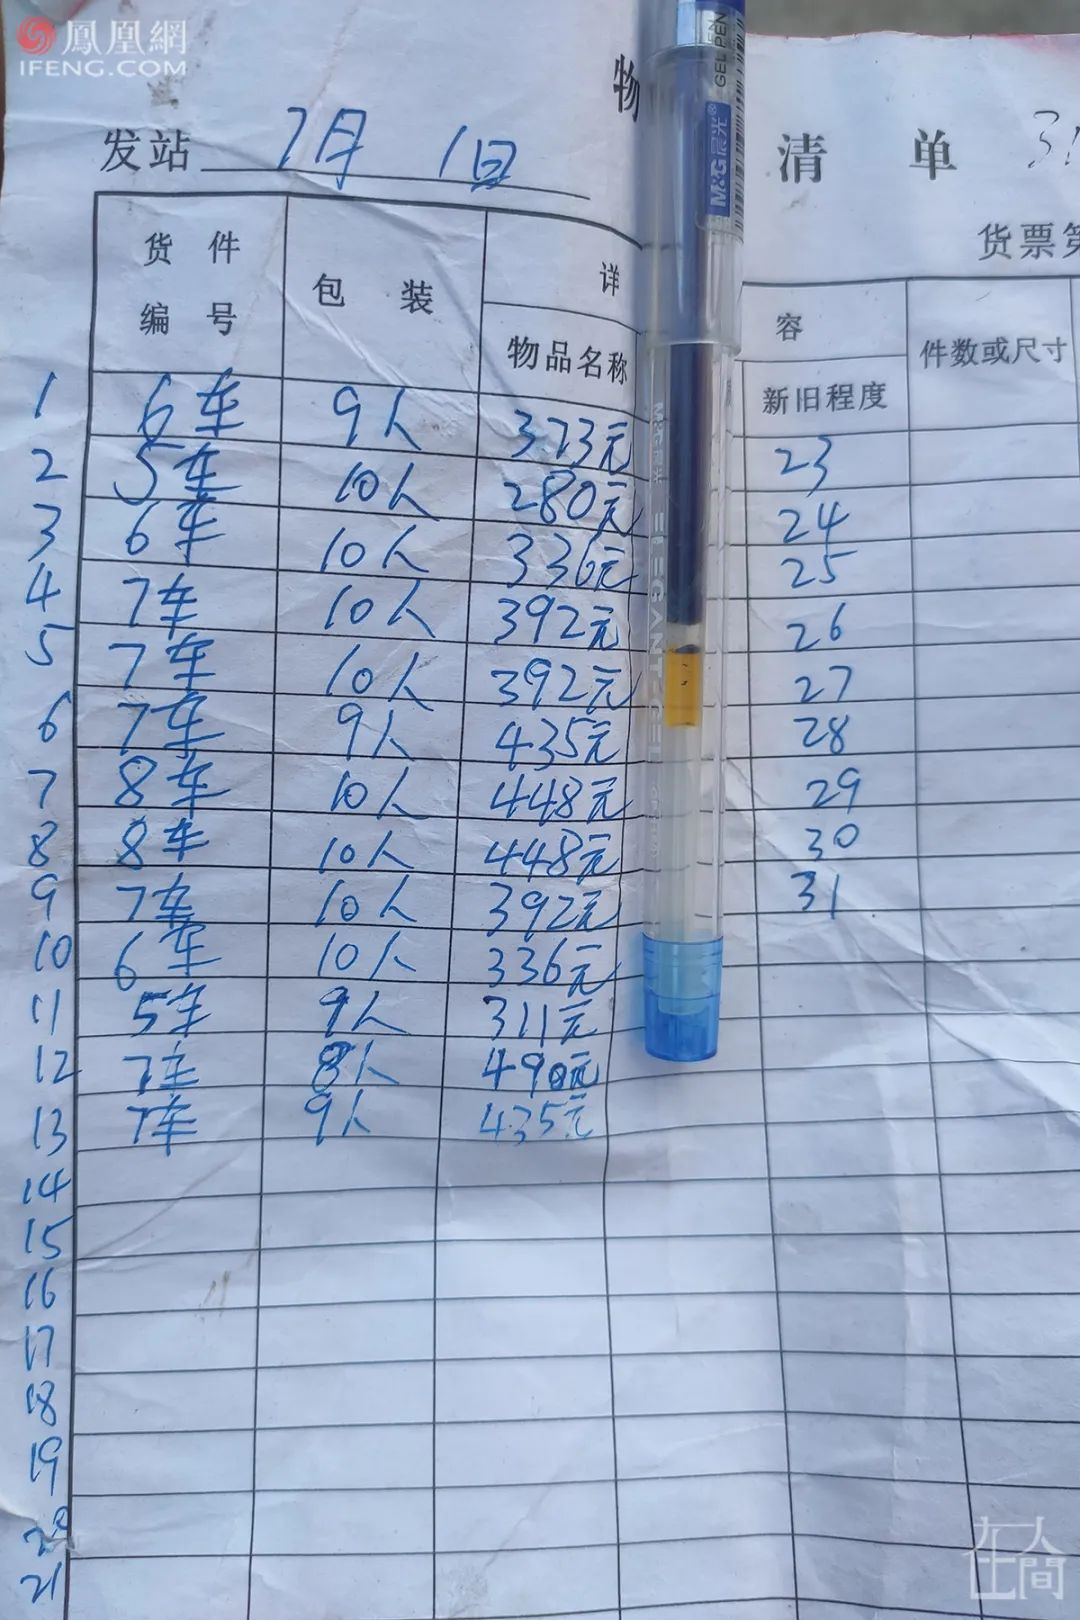 鳳凰網
IFENG.COM
物 清 单
发站 7月 1日
货票第
货件编号 包装 详 容
物品名称 新旧程度 件数或尺寸
1 6车 9人 373元 23
2 5车 10人 280元 24
3 6车 10人 336元 25
4 7车 10人 392元 26
5 7车 10人 392元 27
6 7车 9人 435元 28
7 8车 10人 448元 29
8 8车 10人 448元 30
9 7车 10人 392元 31
10 6车 10人 336元
11 5车 9人 311元
12 7车 8人 490元
13 7车 9人 435元
14
15
16
17
18
19
20
21
GEL PEN
M&G晨光
ELEGANT GEL
在人間